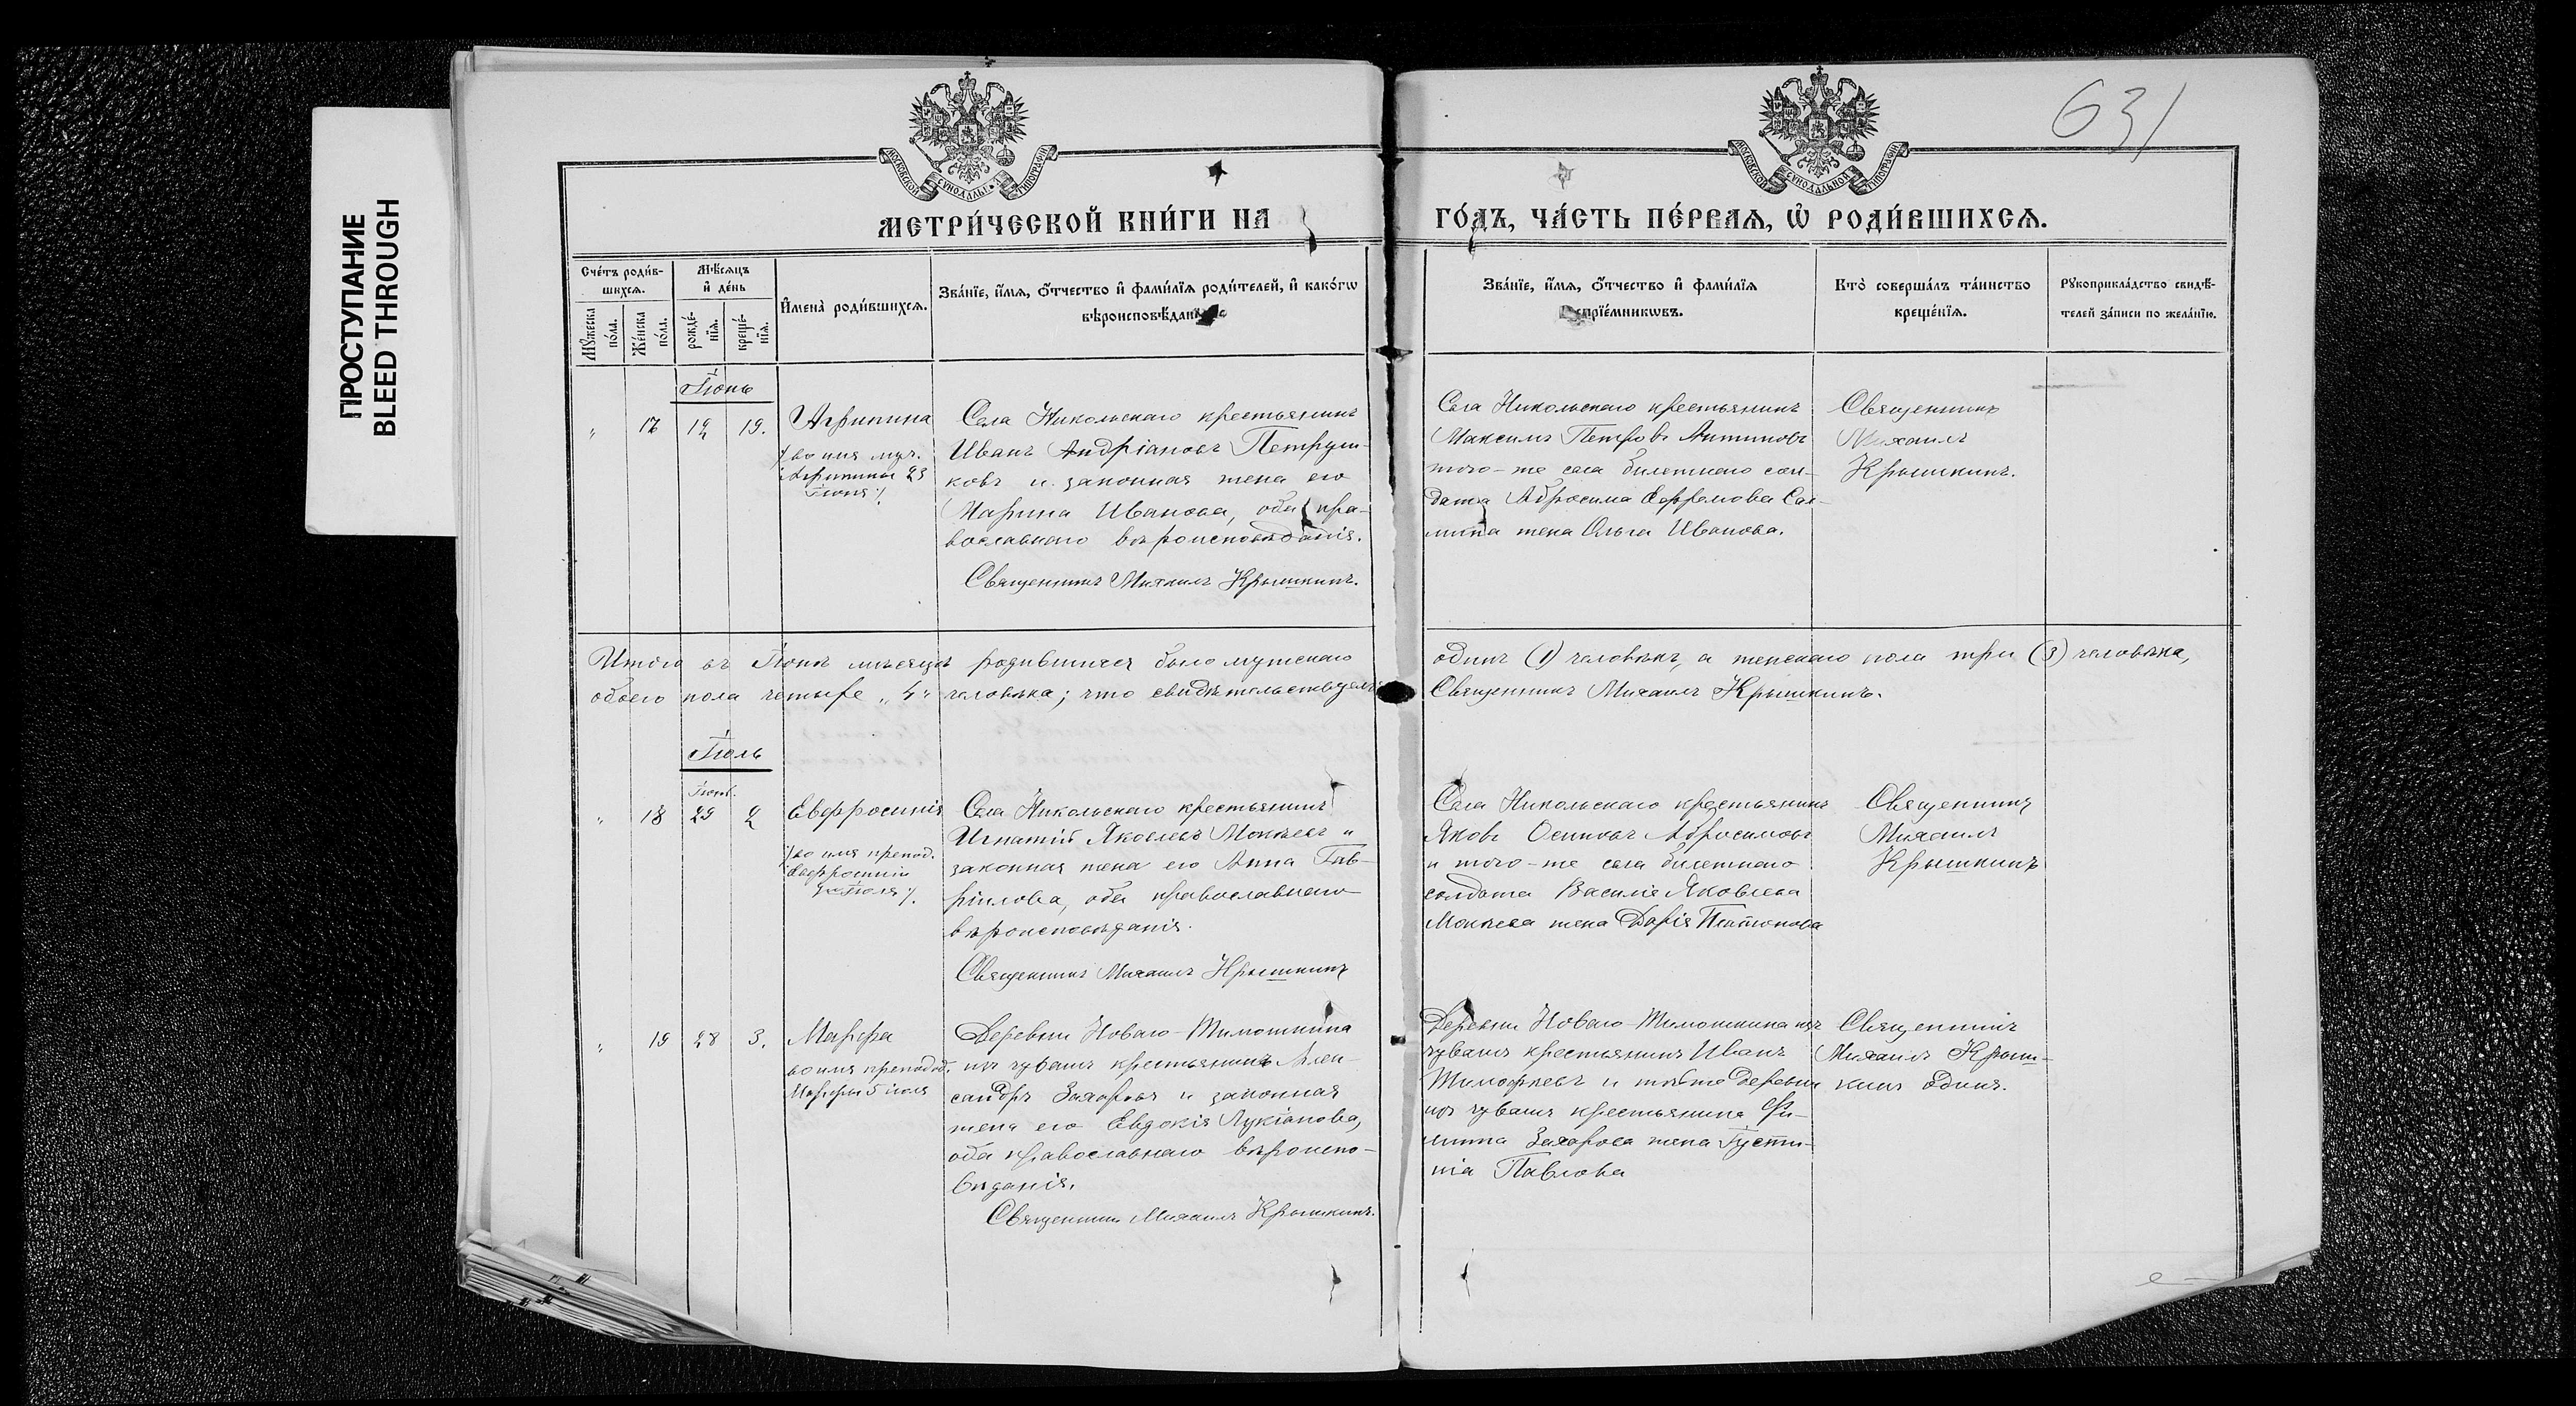 ПРОСТУПАНИЕ
BLEED THROUGH
631
МОСКОВСКОЙ СѴНОДАЛЬНОЙ ТИПОГРАФІИ
МОСКОВСКОЙ СѴНОДАЛЬНОЙ ТИПОГРАФІИ
МЕТРИ́ЧЕСКОЙ КНИ́ГИ НА
ГО́ДЪ, ЧА́СТЬ ПЕ́РВАѦ, Ѡ҆ РОДИ́ВШИХСѦ.
Сче́тъ роди́в-
шихсѧ.
Мꙋ́жеска по́ла.
Же́нска по́ла.
Мѣ́сѧцъ
и҆ де́нь
рожде́-
нїѧ.
креще́-
нїѧ.
И҆мена̀ роди́вшихсѧ.
Зва́нїе, и҆́мѧ, ѻ҆́тчество и҆ фамн́лїѧ роди́телей, и҆ како́гѡ
вѣроисповѣ́данїѧ
Зва́нїе, и҆́мѧ, ѻ҆́тчество и҆ фами́лїѧ
воспрїе́мникѡвъ.
Кто̀ соверша́лъ та́инство
креще́нїѧ.
Рꙋкоприкла́дство свидѣ́-
телей за́писи по жела́нїю.
Іюнь
" 17 12 19. Агрипина
во имя муч.
Агрипины 23
Іюня
Села Никольскаго крестьянинъ
Иванъ Андріановъ Петруш-
ковъ и законная жена его
Марина Иванова, оба пра-
вославнаго вѣроисповѣданія.
Священникъ Михаилъ Крышкинъ.
Села Никольскаго крестьянинъ
Максимъ Петровъ Антиповъ
того-же села билетнаго сол-
дата Абросима Ефремова Сал-
мина жена Ольга Иванова.
Священникъ
Михаилъ
Крышкинъ.
Итого въ Іюнѣ мѣсяцѣ родившихся было мужскаго
одинъ (1) человѣкъ, а женскаго пола три (3) человѣка,
обоего пола четыре „4" человѣка; что свидѣтельствуемъ
Священникъ Михаилъ Крышкинъ.
Іюль
Іюня.
" 18 29 2 Евфросинія
во имя препод.
Евфросиніи
Іюля
Села Никольскаго крестьянинъ
Игнатій Яковлевъ Мокѣевъ и
законная жена его Анна Гав-
рилова, оба православнаго
вѣроисповѣданія.
Священникъ Михаилъ Крышкинъ
Села Никольскаго крестьянинъ
Яковъ Осиповъ Абросимовъ
и того-же села билетнаго
солдата Василіе Яковлева
Мокѣева жена Дарія Платонова
Священникъ
Михаилъ
Крышкинъ
" 19 28 3. Марфа
во имя преподоб.
Марфы 5 іюля
Деревни Новаго-Тимошкина
изъ чувашъ крестьянинъ Алек-
сандръ Захаровъ и законная
жена его Евдокія Лукіанова,
оба православнаго вѣроиспо-
вѣданія.
Священникъ Михаилъ Крышкинъ.
Деревни Новаго-Тимошкина изъ
чувашъ крестьянинъ Иванъ
Тимофѣевъ и той же деревни
изъ чувашъ крестьянина Фи-
липпа Захарова жена Густи-
нія Павлова
Священникъ
Михаилъ Крыш-
кинъ одинъ.